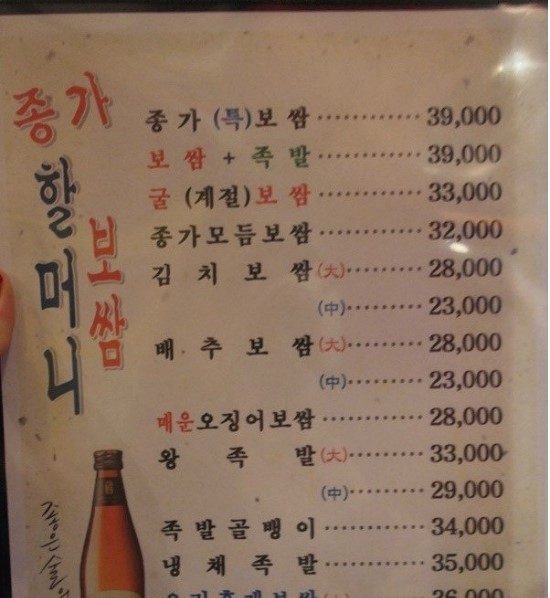 종가
할머니
보쌈
종가(특)보쌈 ············ 39,000
보쌈 + 족발 ············ 39,000
굴(계절)보쌈 ············ 33,000
종가모듬보쌈 ············ 32,000
김치보쌈(大) ············ 28,000
(中) ············ 23,000
배추보쌈(大) ············ 28,000
(中) ············ 23,000
매운오징어보쌈 ············ 28,000
왕족발(大) ············ 33,000
(中) ············ 29,000
족발골뱅이 ············ 34,000
냉채족발 ············ 35,000
좋은술